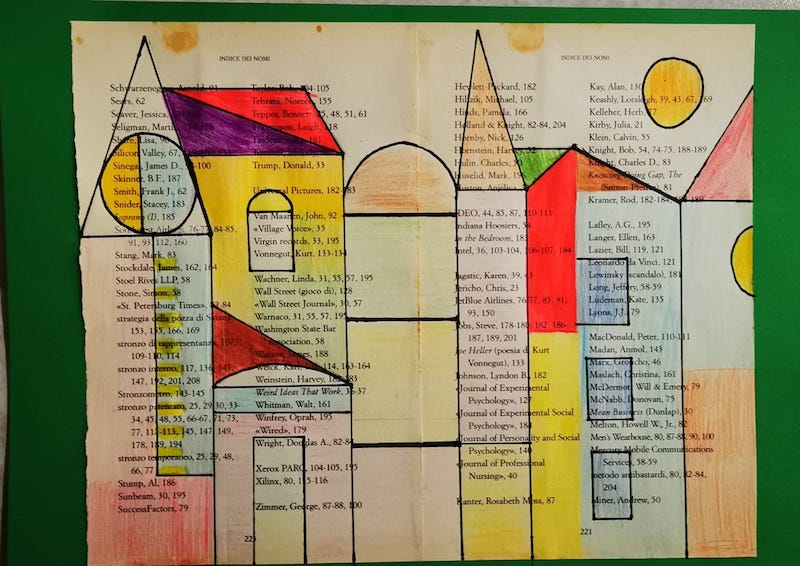 INDICE DEI NOMI
Schwarzenegger, Arnold, 91
Sears, 62
Seaver, Jessica,
Seligman, Martin,
Shore, Lisa, 96
Silicon Valley, 67,
Sinegal, James D., -100
Skinner, B.F., 187
Smith, Frank J., 62
Snider, Stacey, 183
Soprano (I), 185
Southwest Airlines, 76-77, 84-85,
91, 93, 112, 160
Stang, Mark, 83
Stockdale, James, 162, 164
Stoel Rives LLP, 58
Stone, Simon, 58
«St. Petersburg Times», 82-84
strategia della pozza di
153, 155, 166, 169
stronzo di rappresentanza, 107,
109-110, 114
stronzo interno, 117, 136,
147, 192, 201, 208
Stronzometro, 143-145
stronzo patentato, 25, 29, 30, 33-
34, 45, 48, 55, 66-67, 71, 73,
77, 111-113, 145, 147, 149,
178, 189, 194
stronzo temporaneo, 25, 29, 48,
66, 77
Stump, Al, 186
Sunbeam, 30, 195
SuccessFactors, 79
Taylor, Bob, 104-105
Tehrani, Noreen, 155
Tepper, Bennett, 25, 48, 51, 61
Thompson, Leigh, 118
Trump, Donald, 33
Universal Pictures, 182-183
Van Maanen, John, 92
«Village Voice», 35
Virgin records, 33, 195
Vonnegut, Kurt, 133-134
Wachner, Linda, 31, 55, 57, 195
Wall Street (gioco di), 128
«Wall Street Journal», 30, 57
Warnaco, 31, 55, 57, 195
Washington State Bar
Association, 58
Watson, James, 188
Welch, Kar 114, 163-164
Weinstein, Harvey, 182-183
Weird Ideas That Work, 36-37
Whitman, Walt, 161
Winfrey, Oprah, 195
«Wired», 179
Wright, Douglas A., 82-84
Xerox PARC, 104-105, 195
Xilinx, 80, 115-116
Zimmer, George, 87-88, 100
INDICE DEI NOMI
Hewlett-Packard, 182
Hiltzik, Michael, 105
Hinds, Pamela, 166
Holland & Knight, 82-84, 204
Hornby, Nick, 126
Hornstein, Harvey,
Hulin, Charles,
Huselid, Mark, 196
Huston, Anjelica,
IDEO, 44, 85, 87, 110-111
Indiana Hoosiers, 54
In the Bedroom, 183
Intel, 36, 103-104, 106-107, 184
Jagatic, Karen, 39, 43
Jericho, Chris, 23
JetBlue Airlines, 76-77, 85, 91,
93, 150
Jobs, Steve, 178-180, 182, 186
187, 189, 201
Joe Heller (poesia di Kurt
Vonnegut), 133
Johnson, Lyndon B., 182
«Journal of Experimental
Psychology», 127
«Journal of Experimental Social
Psychology», 184
«Journal of Personality and Social
Psychology», 140
«Journal of Professional
Nursing», 40
Kanter, Rosabeth Moss, 87
Kay, Alan, 130
Keashly, Loraleigh, 39, 43, 67, 169
Kelleher, Herb, 77
Kirby, Julia, 21
Klein, Calvin, 55
Knight, Bob, 54, 74-75, 188-189
Knight, Charles D., 83
Knowing-Doing Gap, The
(Sutton-Pfeffer), 81
Kramer, Rod, 182-184, 189
Lafley, A.G., 195
Langer, Ellen, 163
Lazier, Bill, 119, 121
Leonardo da Vinci, 121
Lewinsky (scandalo), 181
Long, Jeffery, 58-59
Ludeman, Kate, 135
Lyons, J.J., 79
MacDonald, Peter, 110-111
Madan, Anmol, 143
Marx, Groucho, 46
Maslach, Christina, 161
McDermott Will & Emery, 79
McNabb, Donovan, 75
Mean Business (Dunlap), 30
Melton, Howell W., Jr., 82
Men's Wearhouse, 80, 87-88, 90, 100
Mercury Mobile Communications
Services, 58-59
metodo antibastardi, 80, 82-84,
204
Miner, Andrew, 50
221